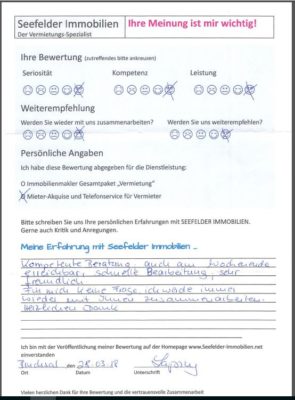 Seefelder Immobilien
Der Vermietungs-Spezialist
Ihre Meinung ist mir wichtig!
Ihre Bewertung (zutreffendes bitte ankreuzen)
Seriosität Kompetenz Leistung
Weiterempfehlung
Würden Sie wieder mit uns zusammenarbeiten? Würden Sie uns weiterempfehlen?
Persönliche Angaben
Ich habe diese Bewertung abgegeben für die Dienstleistung:
O Immobilienmakler Gesamtpaket „Vermietung"
O Mieter-Akquise und Telefonservice für Vermieter
Bitte schreiben Sie uns Ihre persönlichen Erfahrungen mit SEEFELDER IMMOBILIEN.
Gerne auch Kritik und Anregungen.
Meine Erfahrung mit Seefelder Immobilien ...
Kompetente Beratung, auch am Wochenende
erreichbar, schnelle Bearbeitung, sehr
freundlich.
Für mich keine Frage ich würde immer
wieder mit Ihnen zusammenarbeiten.
Herzlichen Dank
Ich bin mit der Veröffentlichung meiner Bewertung auf der Homepage www.Seefelder-Immobilien.net
einverstanden
Bruchsal am 28.03.18
Ort Datum Unterschrift
Vielen herzlichen Dank für Ihre Bewertung und die vertrauensvolle Zusammenarbeit